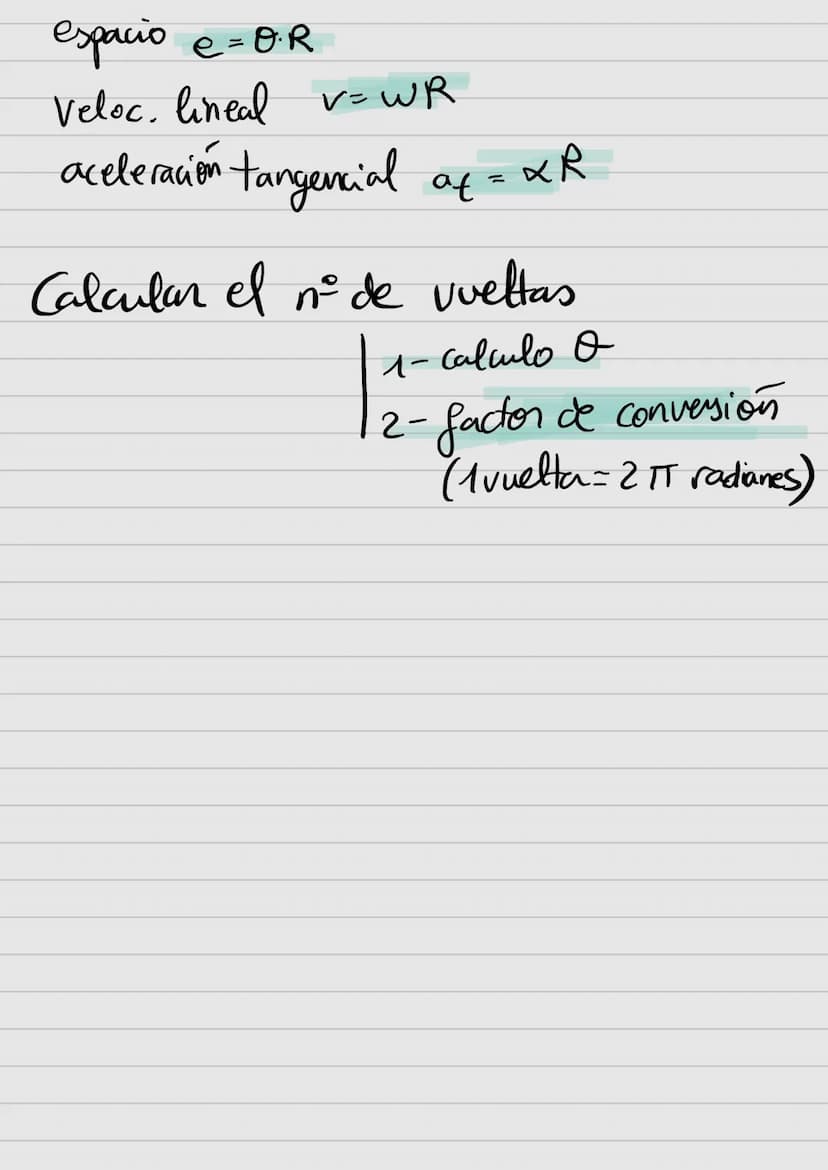 espacio e = θ·R
veloc. lineal v = WR
aceleración tangencial at = αR
Calcular el nº de vueltas
1- calculo θ
2- factor de conversión
(1 vuelta = 2π radianes)